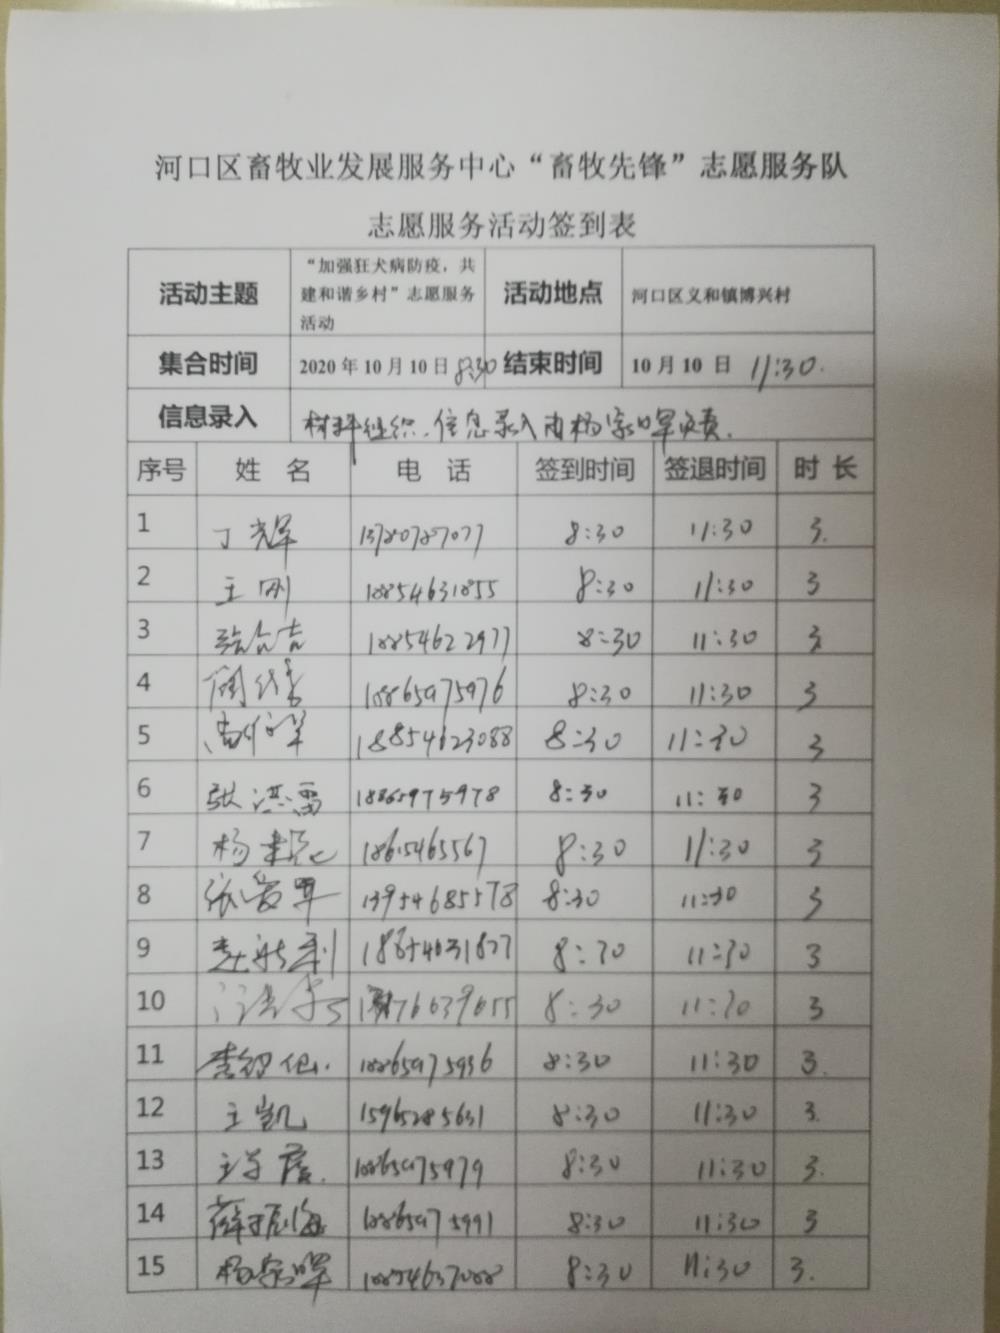 河口区畜牧业发展服务中心“畜牧先锋”志愿服务队
志愿服务活动签到表
活动主题 “加强狂犬病防疫，共建和谐乡村”志愿服务活动 活动地点 河口区义和镇博兴村
集合时间 2020年10月10日 8:30 结束时间 10月10日 11:30.
信息录入 材料组织、信息录入由杨家晖负责.
序号 姓名 电话 签到时间 签退时间 时长
1 丁辉 13780787077 8:30 11:30 3.
2 王刚 18854631855 8:30 11:30 3
3 18854622977 8:30 11:30 3
4 18865975976 8:30 11:30 3
5 18854623088 8:30 11:30 3
6 张洪雷 18865975978 8:30 11:30 3
7 杨 18615465567 8:30 11:30 3
8 张爱军 13954685578 8:30 11:30 3
9 赵新利 18654631877 8:30 11:30 3
10 8:30 11:30 3
11 李 18865975936 8:30 11:30 3.
12 王凯 15965285631 8:30 11:30 3.
13 王 18865975979 8:30 11:30 3.
14 薛振海 18865975991 8:30 11:30 3
15 杨家晖 18854637088 8:30 11:30 3.